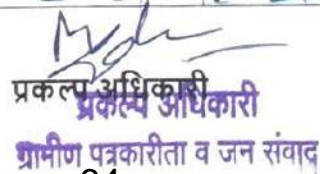 प्रकल्प अधिकारी
प्रकल्प अधिकारी
ग्रामीण पत्रकारीता व जन संवाद